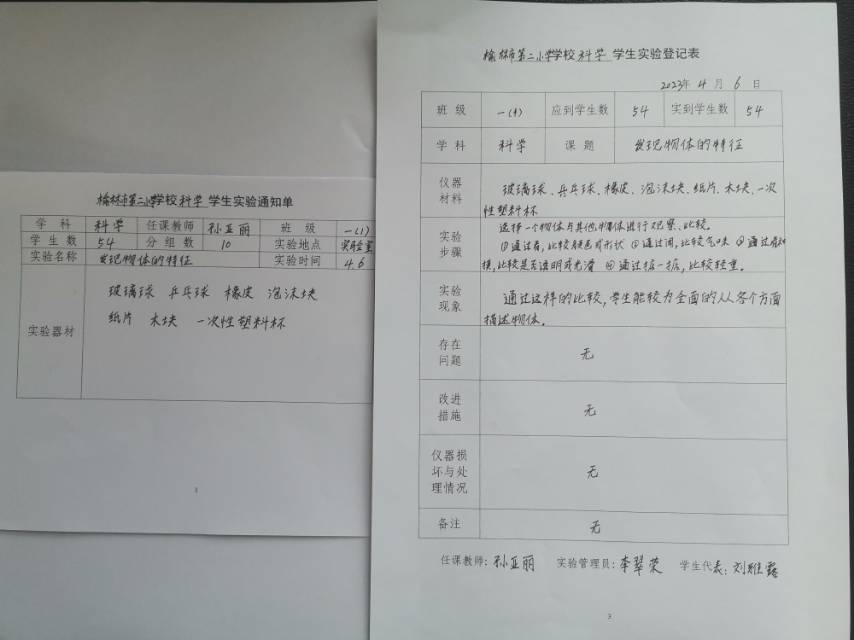 榆林市第二小学学校科学学生实验通知单
学科 科学 任课教师 孙亚丽 班级 一(1)
学生数 54 分组数 10 实验地点 实验室
实验名称 发现物体的特征 实验时间 4.6
实验器材
玻璃球 乒乓球 橡皮 泡沫块
纸片 木块 一次性塑料杯
1
榆林市第二小学学校科学学生实验登记表
2023年4月6日
班级 一(1) 应到学生数 54 实到学生数 54
学科 科学 课题 发现物体的特征
仪器材料
玻璃球、乒乓球、橡皮、泡沫块、纸片、木块、一次
性塑料杯
实验步骤
选择一个物体与其他物体进行观察、比较。
①通过看,比较颜色或形状 ②通过闻,比较气味 ③通过看和
摸,比较是否透明或光滑 ④通过掂一掂,比较轻重。
实验现象
通过这样的比较,学生能较为全面的从各个方面
描述物体。
存在问题 无
改进措施 无
仪器损坏与处理情况 无
备注 无
任课教师:孙亚丽 实验管理员:李翠荣 学生代表:刘雅露
3